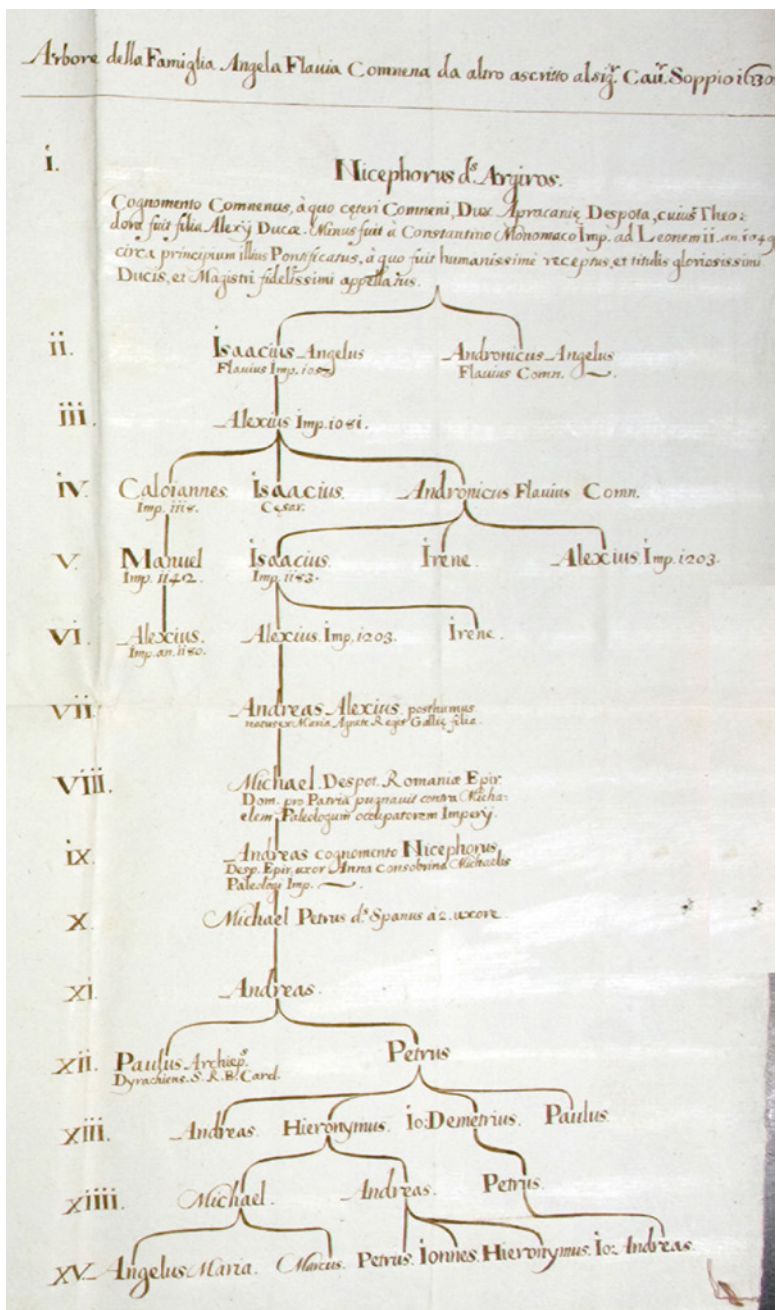 Arbore della Famiglia Angela Flavia Comnena da altro ascritto al sig.r Cau.r Soppio 1630
i. Nicephorus d.s Argiros.
Cognomento Comnenus, à quo cęteri Comneni, Dux Apracanię Despota, cuius Theo:
dora fuit filia Alexÿ Ducæ. Minus fuit à Constantino Monomaco Imp. ad Leonem ii. an. 1049
circa principium illius Pontificatus, à quo fuit humanissimè receptus, et titulis gloriosissimi
Ducis, et Magistri fidelissimi appellatus.
ii. Isaacius Angelus Andronicus Angelus
Flavius Imp. Flavius Comn.
iii. Alexius Imp. 1081.
iv. Caloiannes. Isaacius. Andronicus Flavius Comn.
Imp. 1118. Cęsar.
V. Manuel Isaacius Irene. Alexius Imp. 1203.
Imp. 1142. Imp. 1183.
VI. Alexius. Alexius Imp. 1203. Irene.
Imp. an. 1180.
VII. Andreas Alexius posthumus
natus ex Maria Agnete Regis Gallię filia.
VIII. Michael Despot. Romaniæ Epir.
Dom. pro Patria pugnavit contra Micha:
elem Paleologum occupatorem Imperÿ.
ix. Andreas cognomento Nicephorus
Desp. Epir. uxor Anna Consobrina Michaelis
Paleologi Imp.
X. Michael Petrus d.s Spanus à 2. uxore.
xi. Andreas.
xii. Paulus Archiep.s Petrus
Dyrachiens. S. R. B. Card.
xiii. Andreas. Hieronymus. Io: Demetrius. Paulus
xiiii. Michael. Andreas. Petrus.
XV. Angelus Maria. Marcus. Petrus. Ionnes. Hieronymus. Io: Andreas.